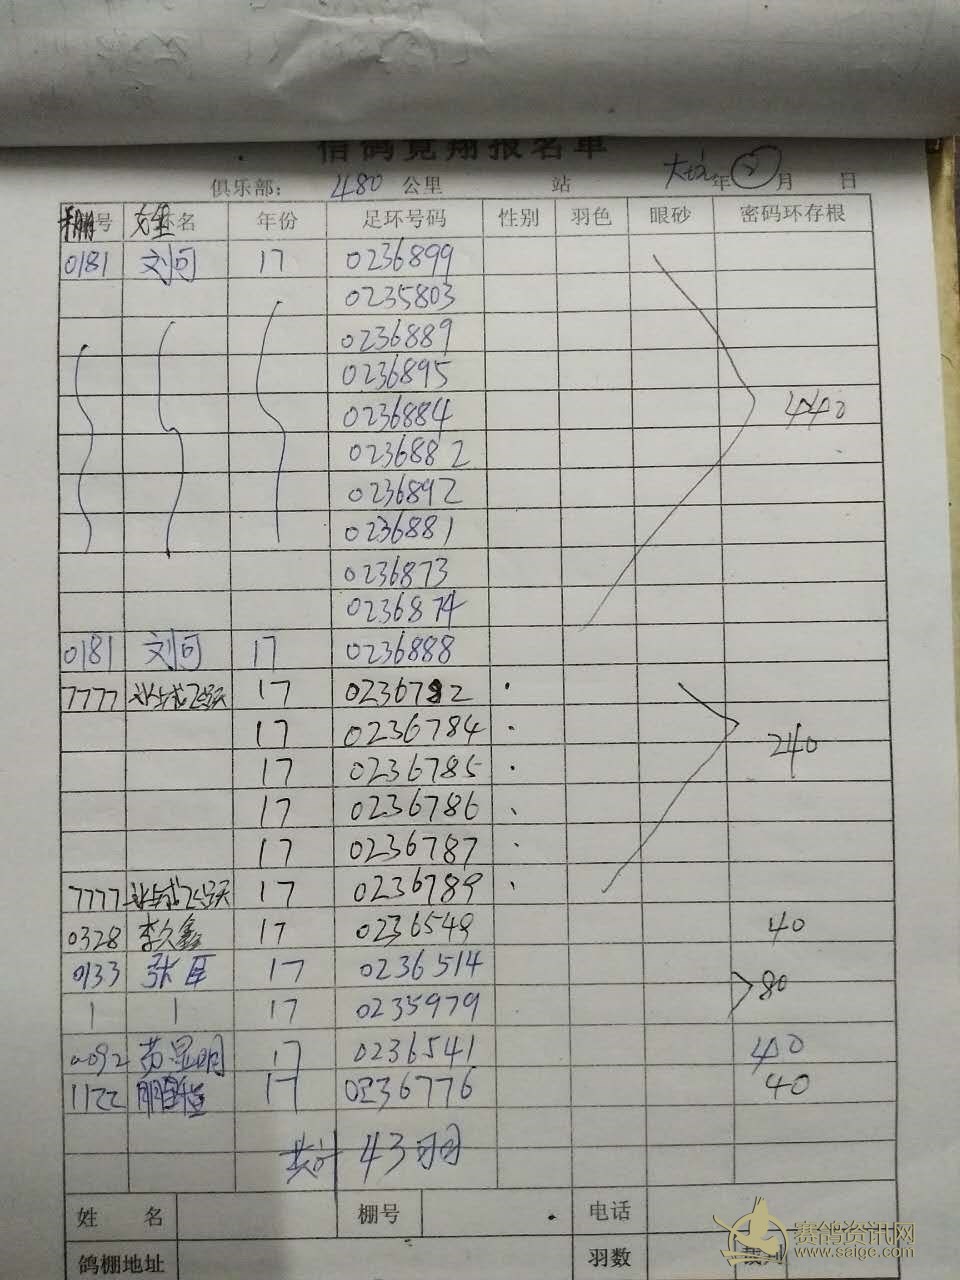 信鸽竞翔报名单
俱乐部： 480 公里 站 年 ② 月 日
棚号 名 年份 足环号码 性别 羽色 眼砂 密码环存根
0181 刘可 17 0236899
0235803
0236889
0236895
0236884 440
0236882
0236892
0236881
0236873
0236874
0181 刘可 17 0236888
7777 17 0236782
17 0236784 240
17 0236785
17 0236786
17 0236787
7777 17 0236789
0328 李久鑫 17 0236549 40
0133 张臣 17 0236514 80
17 0235979
0092 苏显明 17 0236541 40
1122 17 0236776 40
共计 43羽
姓 名 棚号 电话
鸽棚地址 羽数 裁判
赛鸽资讯网
www.saigc.com